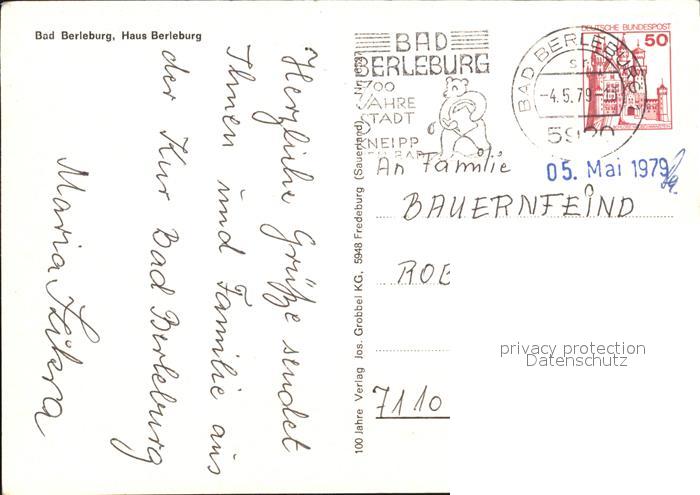 Bad Berleburg, Haus Berleburg
Herzliche Grüße sendet
Ihnen und Familie aus
der Kur Bad Berleburg
Maria
100 Jahre Verlag Jos. Grobbel KG, 5948 Fredeburg (Sauerland)
BAD
BERLEBURG
700
JAHRE
STADT
KNEIPP
BAD BERLEBURG
-4.5.79-
5920
DEUTSCHE BUNDESPOST
50
05. Mai 1979
An Familie
BAUERNFEIND
ROE
7110
privacy protection
Datenschutz